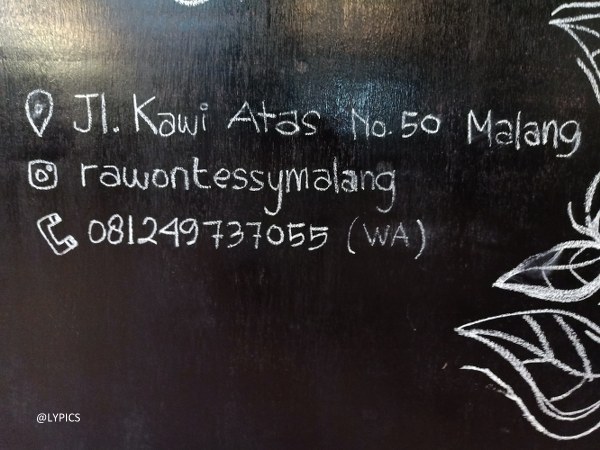 Jl. Kawi Atas No. 50 Malang
rawontessymalang
081249737055 (WA)
@LYPICS